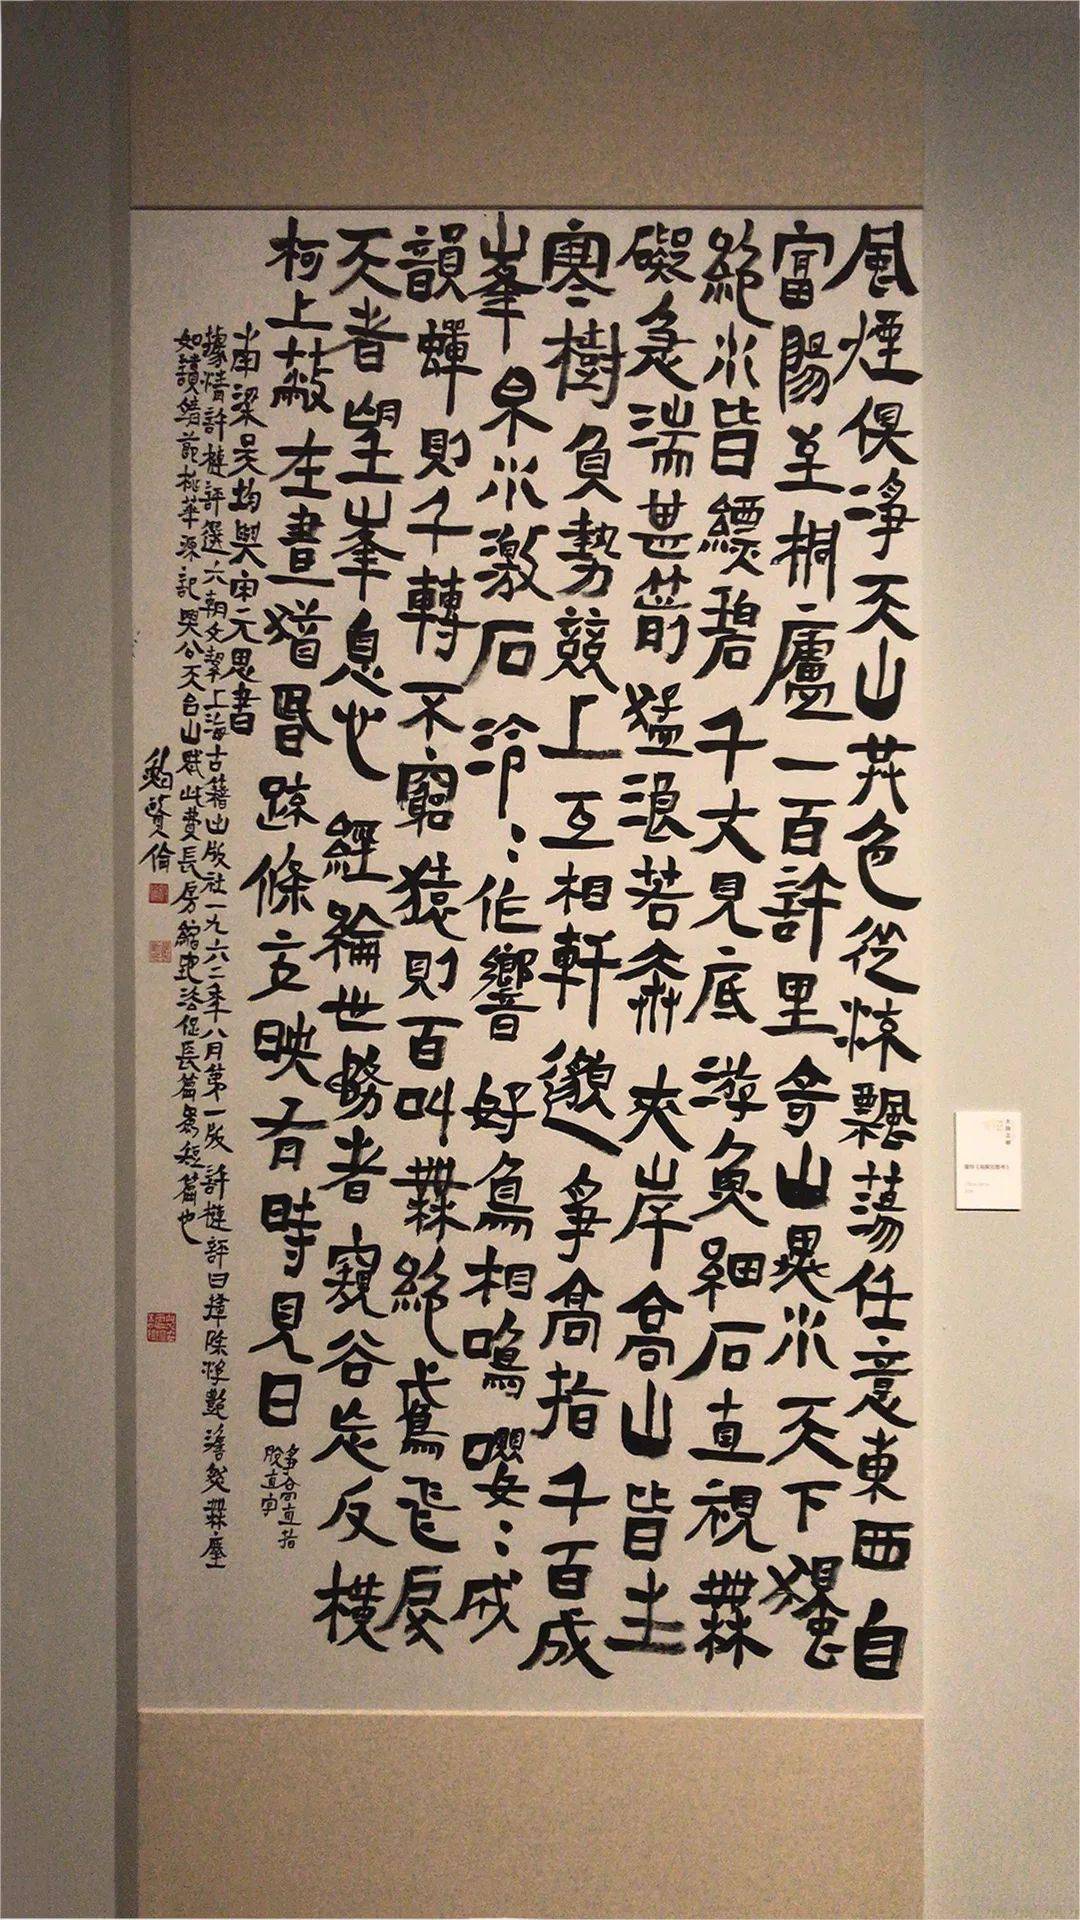 風煙俱淨天山共色從流飄蕩任意東西自
富陽至桐廬一百許里奇山異水天下獨
絕水皆縹碧千丈見底游魚細石直視無
礙急湍甚箭猛浪若奔夾岸高山皆生
寒樹負勢競上互相軒邈爭高指千百成
峯泉水激石泠〻作響好鳥相鳴嚶〻成
韻蟬則千轉不窮猿則百叫無絕鳶飛戾
天者望峯息心經綸世務者窺谷忘反橫
柯上蔽在晝猶昏疏條交映有時見日
爭高直指
脫直字
南梁吳均與宋元思書
據清許槤評選六朝文絜上海古籍出版社一九六二年八月第一版許槤評曰掃除浮艷澹然無塵
如讀靖節桃華源記興公天台山賦此費長房縮地法促長篇為短篇也